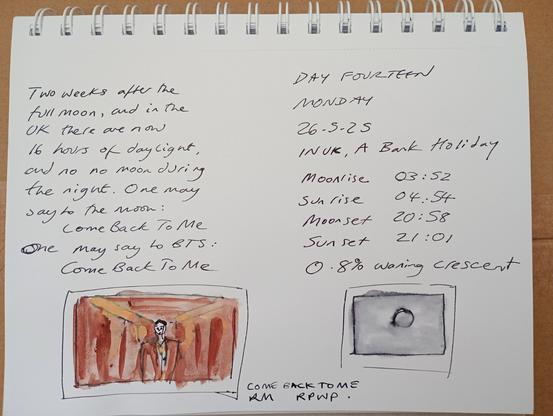 Two weeks after the
full moon, and in the
UK there are now
16 hours of daylight,
and no no moon during
the night. One may
say to the moon:
Come Back To Me
One may say to BTS:
Come Back To Me
DAY FOURTEEN
MONDAY
26-5-25
IN UK, A Bank Holiday
Moonrise 03:52
Sunrise 04:54
Moonset 20:58
Sunset 21:01
0.8% waning crescent
COME BACK TO ME
RM RPWP.